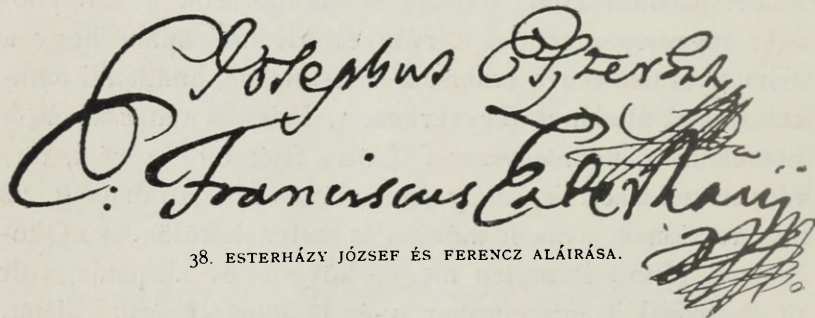 C. Josephus Eszerház
C. Franciscus Esterhasij
38. ESTERHÁZY JÓZSEF ÉS FERENCZ ALÁIRÁSA.